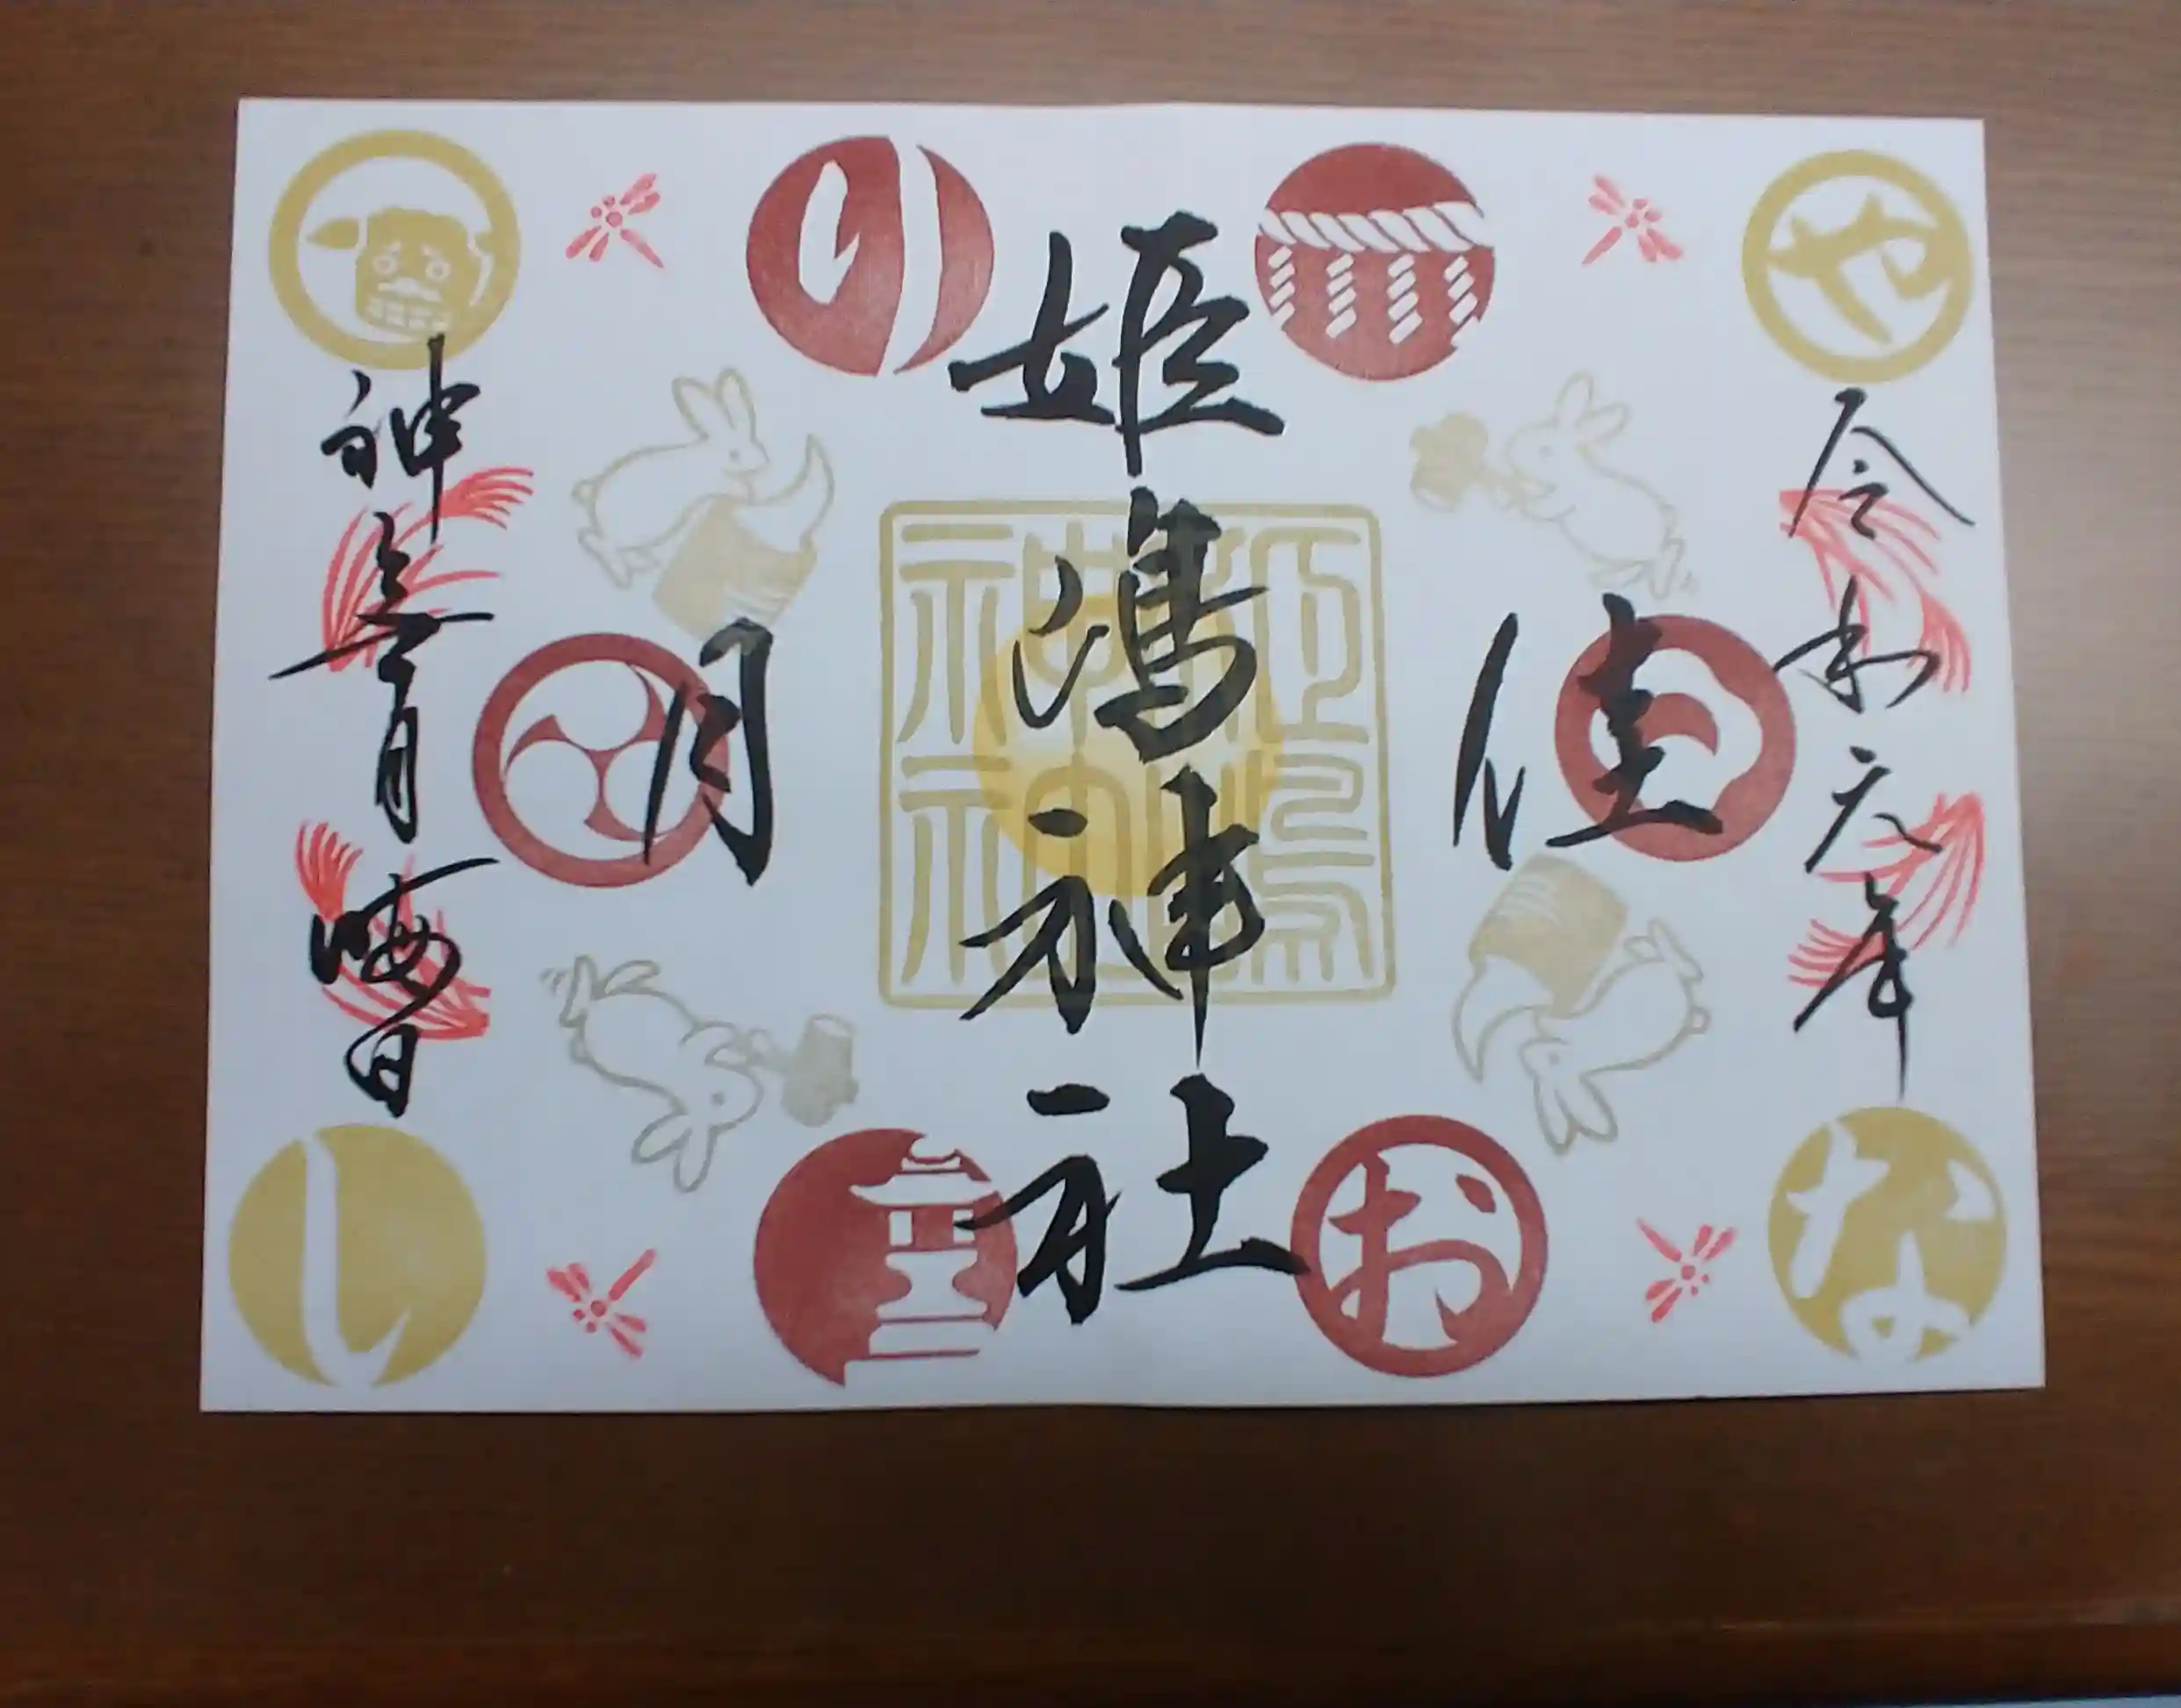 令和元年
佳
姫嶋神社
月
神無月晦日
や
の
お
な
し
姫嶋神社